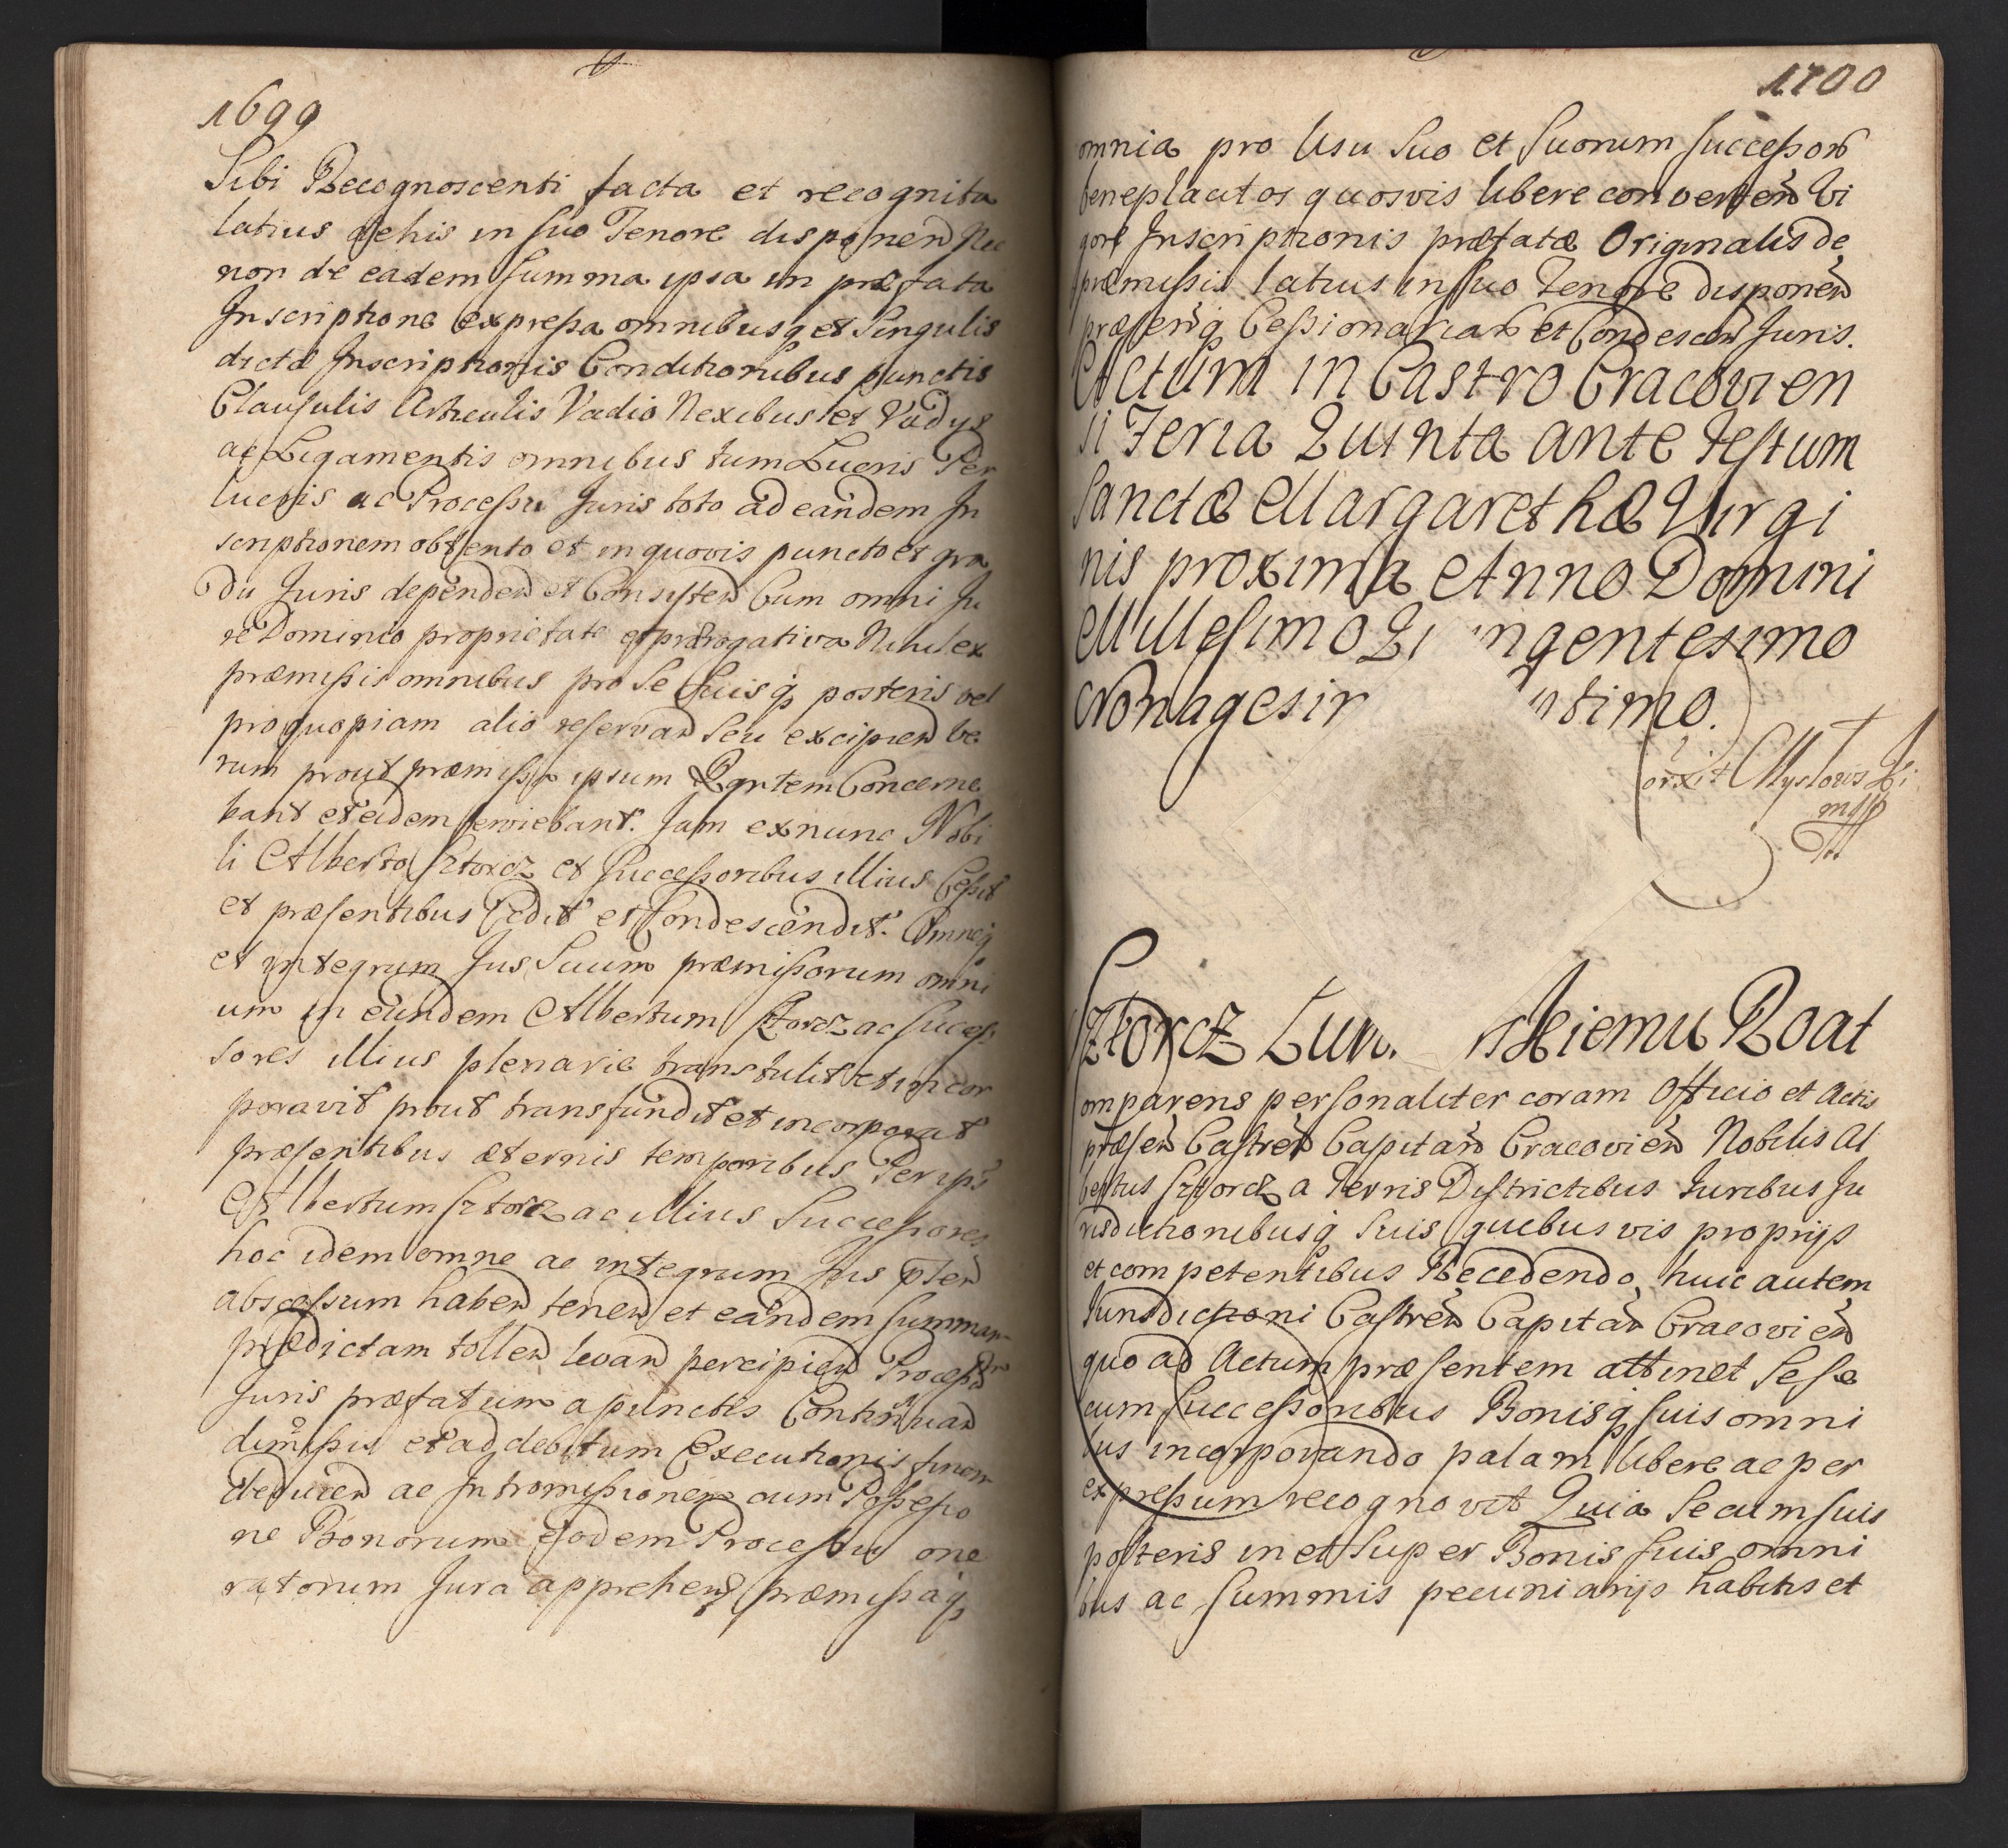 1699
Sibi Recognoscenti facta et recognita
latius de his in suo Tenore disponen Nec
non de eadem summa ipsa in præfata
Inscriptione expressa omnibusq et Singulis
dictæ Inscriptionis Conditionibus punctis
Clausulis Articulis Vadio Nexibus et Vadys
ac Ligamentis omnibus tum Lucris Per
lucris ac Processu Juris toto ad eandem In
scriptionem obtento et in quovis puncto et gra
du Juris dependen et Consisten Cum omni Ju
re Dominio proprietate et prærogativa Nihil ex
præmissis omnibus pro Se Suisq posteris vel
pro quopiam alio reservan Seu excipien ve
rum prout præmissa ipsum Partem Concerne
bant et eidem serviebant. Jam ex nunc Nobi
li Alberto Sztorcz et Successoribus illius Cessit
et præsentibus Cedit et Condescendit. Omneq
et integrum Jus Suum præmissorum omni
um in eundem Albertum Sztorcz ac Succes
sores illius plenarie transtulit et incor
poravit prout transfundit et incorporat
præsentibus æternis temporibus Per ips
Albertum Sztorcz ac illius Successores
hoc idem omne ac integrum Jus
abscessum haben tenen et eandem summam
prædictam tollen levan percipien Processum
Juris præfatum a punctis Continuan
dimissis et ad debitum Executionis finem
deducen ac Intromissionem cum Possessio
ne Bonorum eodem Processu one
ratorum Jura apprehen præmissaq
1700
omnia pro Usu Suo et Suorum successor
beneplacitos quosvis libere converten Vi
gore Inscriptionis præfatæ Originalis de
præmissis latius in suo Tenore disponen
præsenq Cessionariar et Condescen Juris.
Actum in Castro Cracovien
si Feria Quinta ante Festum
Sanctæ Margarethæ Virgi
nis proxima Anno Domini
Millesimo Qi ngentesimo
Nonagesim ntimo.
orxit
mpp
Sztorcz Zum Roat
omparens personaliter coram Officio et Actis
præsen Castren Capitan Cracovien Nobilis Al
bertus Sztorcz a Terris Districtibus Juribus Ju
risdictionibusq Suis quibus vis proprijs
et competentibus Recedendo huic autem
Jurisdictioni Castren Capitan Cracovien
quo ad Actum præsentem attinet Sese
cum Successoribus Bonisq suis omni
bus incorporando palam libere ac per
expressum recognovit Quia Se cum suis
posteris in et Super Bonis suis omni
bus ac summis pecuniarijs habitis et